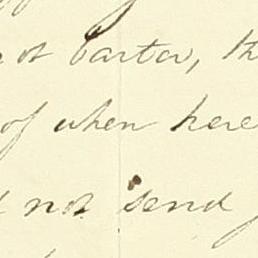 not Carter, th
of when here
not send